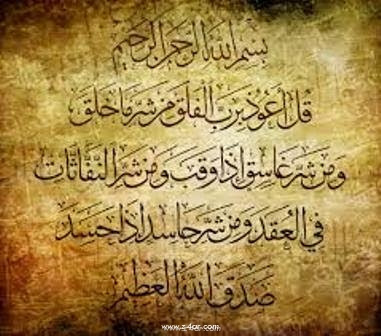 بسم الله الرحمن الرحيم
قل أعوذ برب الفلق من شر ما خلق
ومن شر غاسق إذا وقب ومن شر النفاثات
في العقد ومن شر حاسد إذا حسد
صدق الله العظيم
www.z4ar.com